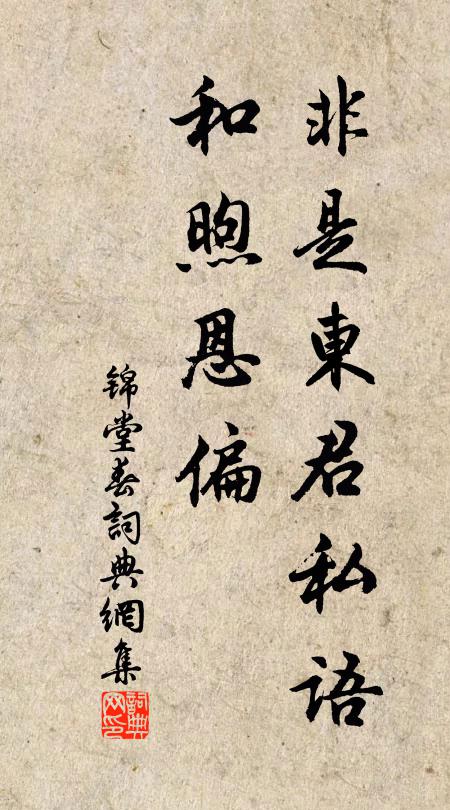 非是東君私語
和煦恩偏
錦堂春詞典網集
詞典網印